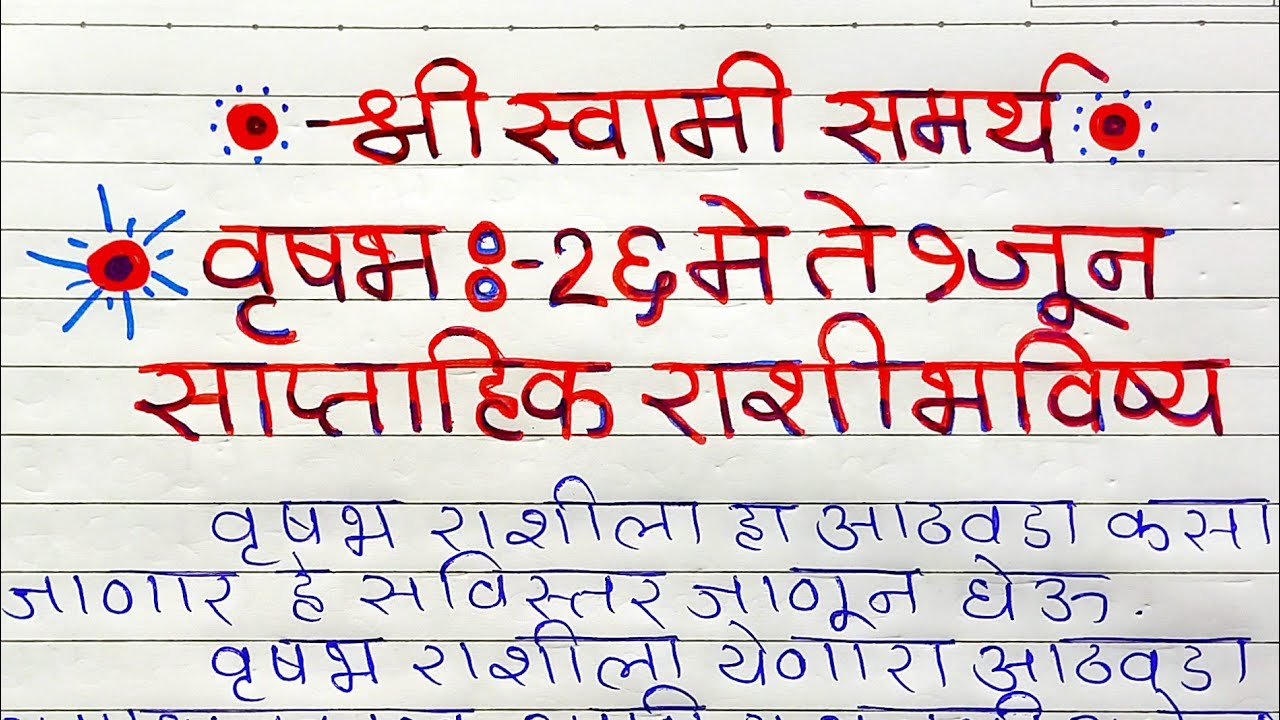 श्री स्वामी समर्थ
वृषभ :-२६ मे ते १ जून
साप्ताहिक राशीभविष्य
वृषभ राशीला हा आठवडा कसा
जाणार हे सविस्तर जाणून घेऊ.
वृषभ राशीला येणारा आठवडा